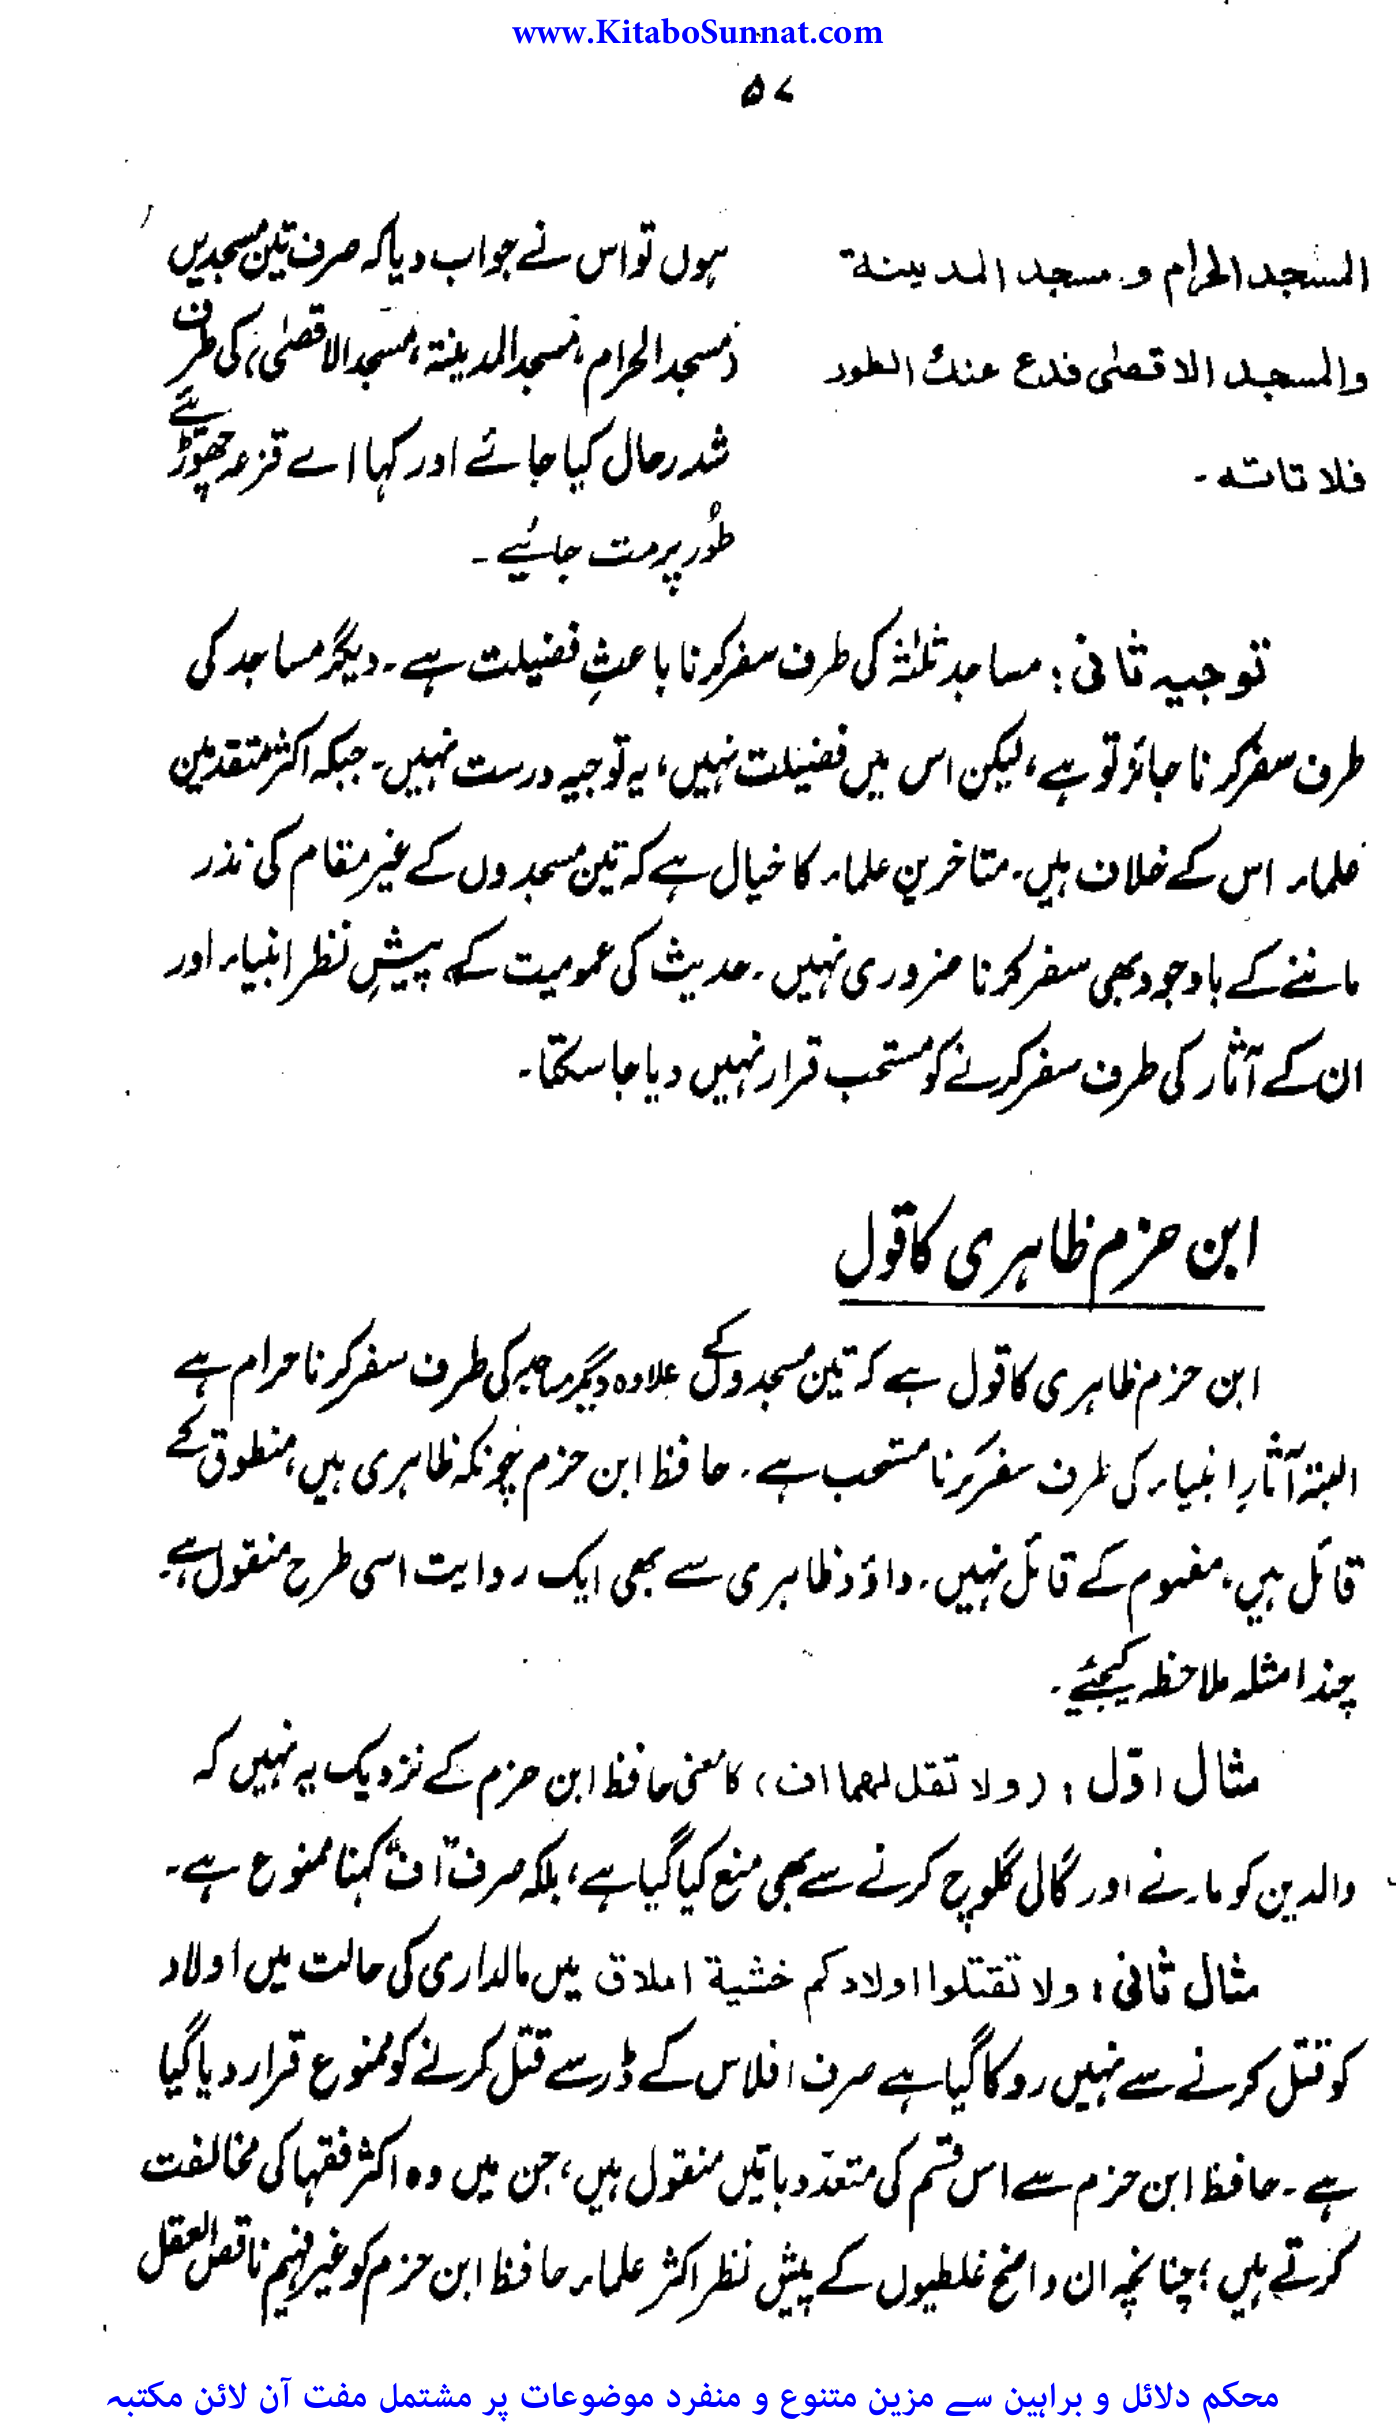 www.KitaboSunnat.com
۵۷
المسجد الحرام و مسجد المدینة
والمسجد الاقصٰی فدع عنك الطور
فلا تاته ۔
ہوں تو اس نے جواب دیا کہ صرف تین مسجدیں
(مسجد الحرام، مسجد المدینۃ، مسجد الاقصٰی) کی طرف
شد رحال کیا جائے اور کہا اے قزعہ چھوڑئے
طُور پر مت جائیے ۔
توجیہ ثانی : مساجد ثلٰثہ کی طرف سفر کرنا باعثِ فضیلت ہے ۔ دیگر مساجد کی
طرف سفر کرنا جائز تو ہے، لیکن اس میں فضیلت نہیں، یہ توجیہ درست نہیں ۔ جبکہ اکثر متقدمین
علماء اس کے خلاف ہیں ۔ متاخرین علماء کا خیال ہے کہ تین مسجدوں کے غیر مقام کی نذر
ماننے کے باوجود بھی سفر کرنا ضروری نہیں ۔ حدیث کی عمومیت کے پیشِ نظر انبیاء اور
ان کے آثار کی طرف سفر کرنے کو مستحب قرار نہیں دیا جا سکتا ۔
ابن حزم ظاہری کا قول
ابن حزم ظاہری کا قول ہے کہ تین مسجدوں کے علاوہ دیگر مساجد کی طرف سفر کرنا حرام ہے
البتہ آثارِ انبیاء کی طرف سفر کرنا مستحب ہے ۔ حافظ ابن حزم چونکہ ظاہری ہیں، منطوق کے
قائل ہیں، مفہوم کے قائل نہیں ۔ داؤد ظاہری سے بھی ایک روایت اسی طرح منقول ہے ۔
چند امثلہ ملاحظہ کیجئے ۔
مثال اوّل : (ولا تقل لهما اف) کا معنی حافظ ابن حزم کے نزدیک یہ نہیں کہ
والدین کو مارنے اور گالی گلوچ کرنے سے بھی منع کیا گیا ہے، بلکہ صرف "اُف" کہنا ممنوع ہے ۔
مثال ثانی : ولا تقتلوا اولادكم خشية املاق میں مالداری کی حالت میں اولاد
کو قتل کرنے سے نہیں روکا گیا ہے صرف افلاس کے ڈر سے قتل کرنے کو ممنوع قرار دیا گیا
ہے ۔ حافظ ابن حزم سے اس قسم کی متعدّد باتیں منقول ہیں، جن میں وہ اکثر فقہا کی مخالفت
کرتے ہیں؛ چنانچہ ان واضح غلطیوں کے پیش نظر اکثر علماء حافظ ابن حزم کو غیر فہیم ناقص العقل
محکم دلائل و براہین سے مزین متنوع و منفرد موضوعات پر مشتمل مفت آن لائن مکتبہ